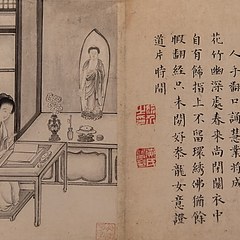 人手翻口誦慧業將成
花竹幽深處春來尚閉關衣中
自有飾指上不留環繡佛猶餘
暇翻經只未閒好參龍女意證
道片時間